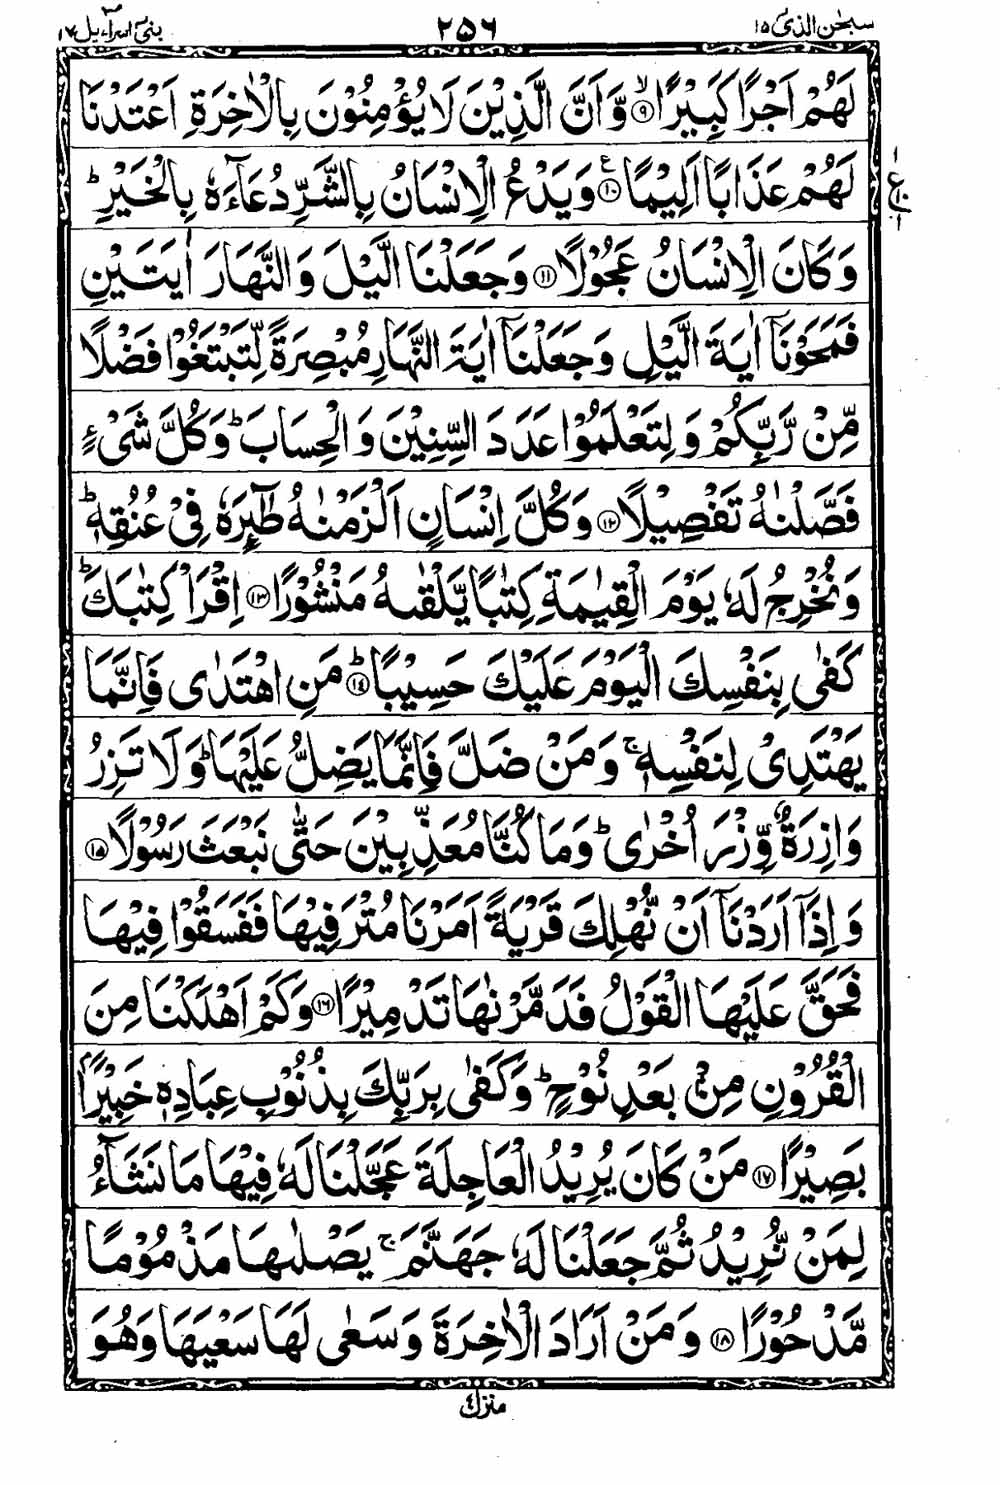 سبحٰن الذیۤ ١٥
٢٥٦
بنیۤ اسرآءیل ١٧
لَهُمْ اَجْرًا كَبِيْرًا ۙ﴿٩﴾ وَّاَنَّ الَّذِيْنَ لَا يُؤْمِنُوْنَ بِالْاٰخِرَةِ اَعْتَدْنَا
لَهُمْ عَذَابًا اَلِيْمًا ﴿١٠﴾ ع وَيَدْعُ الْاِنْسَانُ بِالشَّرِّ دُعَآءَهٗ بِالْخَيْرِ ؕ
وَكَانَ الْاِنْسَانُ عَجُوْلًا ﴿١١﴾ وَجَعَلْنَا الَّيْلَ وَالنَّهَارَ اٰيَتَيْنِ
فَمَحَوْنَاۤ اٰيَةَ الَّيْلِ وَجَعَلْنَاۤ اٰيَةَ النَّهَارِ مُبْصِرَةً لِّتَبْتَغُوْا فَضْلًا
مِّنْ رَّبِّكُمْ وَلِتَعْلَمُوْا عَدَدَ السِّنِيْنَ وَالْحِسَابَ ؕ وَكُلَّ شَیْءٍ
فَصَّلْنٰهُ تَفْصِيْلًا ﴿١٢﴾ وَكُلَّ اِنْسَانٍ اَلْزَمْنٰهُ طٰٓئِرَهٗ فِیْ عُنُقِهٖ ؕ
وَنُخْرِجُ لَهٗ يَوْمَ الْقِيٰمَةِ كِتٰبًا يَّلْقٰىهُ مَنْشُوْرًا ﴿١٣﴾ اِقْرَاْ كِتٰبَكَ ؕ
كَفٰی بِنَفْسِكَ الْيَوْمَ عَلَيْكَ حَسِيْبًا ؕ﴿١٤﴾ مَنِ اهْتَدٰی فَاِنَّمَا
يَهْتَدِیْ لِنَفْسِهٖ ۚ وَمَنْ ضَلَّ فَاِنَّمَا يَضِلُّ عَلَيْهَا ؕ وَلَا تَزِرُ
وَازِرَةٌ وِّزْرَ اُخْرٰی ؕ وَمَا كُنَّا مُعَذِّبِيْنَ حَتّٰی نَبْعَثَ رَسُوْلًا ﴿١٥﴾
وَاِذَاۤ اَرَدْنَاۤ اَنْ نُّهْلِكَ قَرْيَةً اَمَرْنَا مُتْرَفِيْهَا فَفَسَقُوْا فِيْهَا
فَحَقَّ عَلَيْهَا الْقَوْلُ فَدَمَّرْنٰهَا تَدْمِيْرًا ﴿١٦﴾ وَكَمْ اَهْلَكْنَا مِنَ
الْقُرُوْنِ مِنْۢ بَعْدِ نُوْحٍ ؕ وَكَفٰی بِرَبِّكَ بِذُنُوْبِ عِبَادِهٖ خَبِيْرًۢا
بَصِيْرًا ﴿١٧﴾ مَنْ كَانَ يُرِيْدُ الْعَاجِلَةَ عَجَّلْنَا لَهٗ فِيْهَا مَا نَشَآءُ
لِمَنْ نُّرِيْدُ ثُمَّ جَعَلْنَا لَهٗ جَهَنَّمَ ۚ يَصْلٰىهَا مَذْمُوْمًا
مَّدْحُوْرًا ﴿١٨﴾ وَمَنْ اَرَادَ الْاٰخِرَةَ وَسَعٰی لَهَا سَعْيَهَا وَهُوَ
منزل ٤